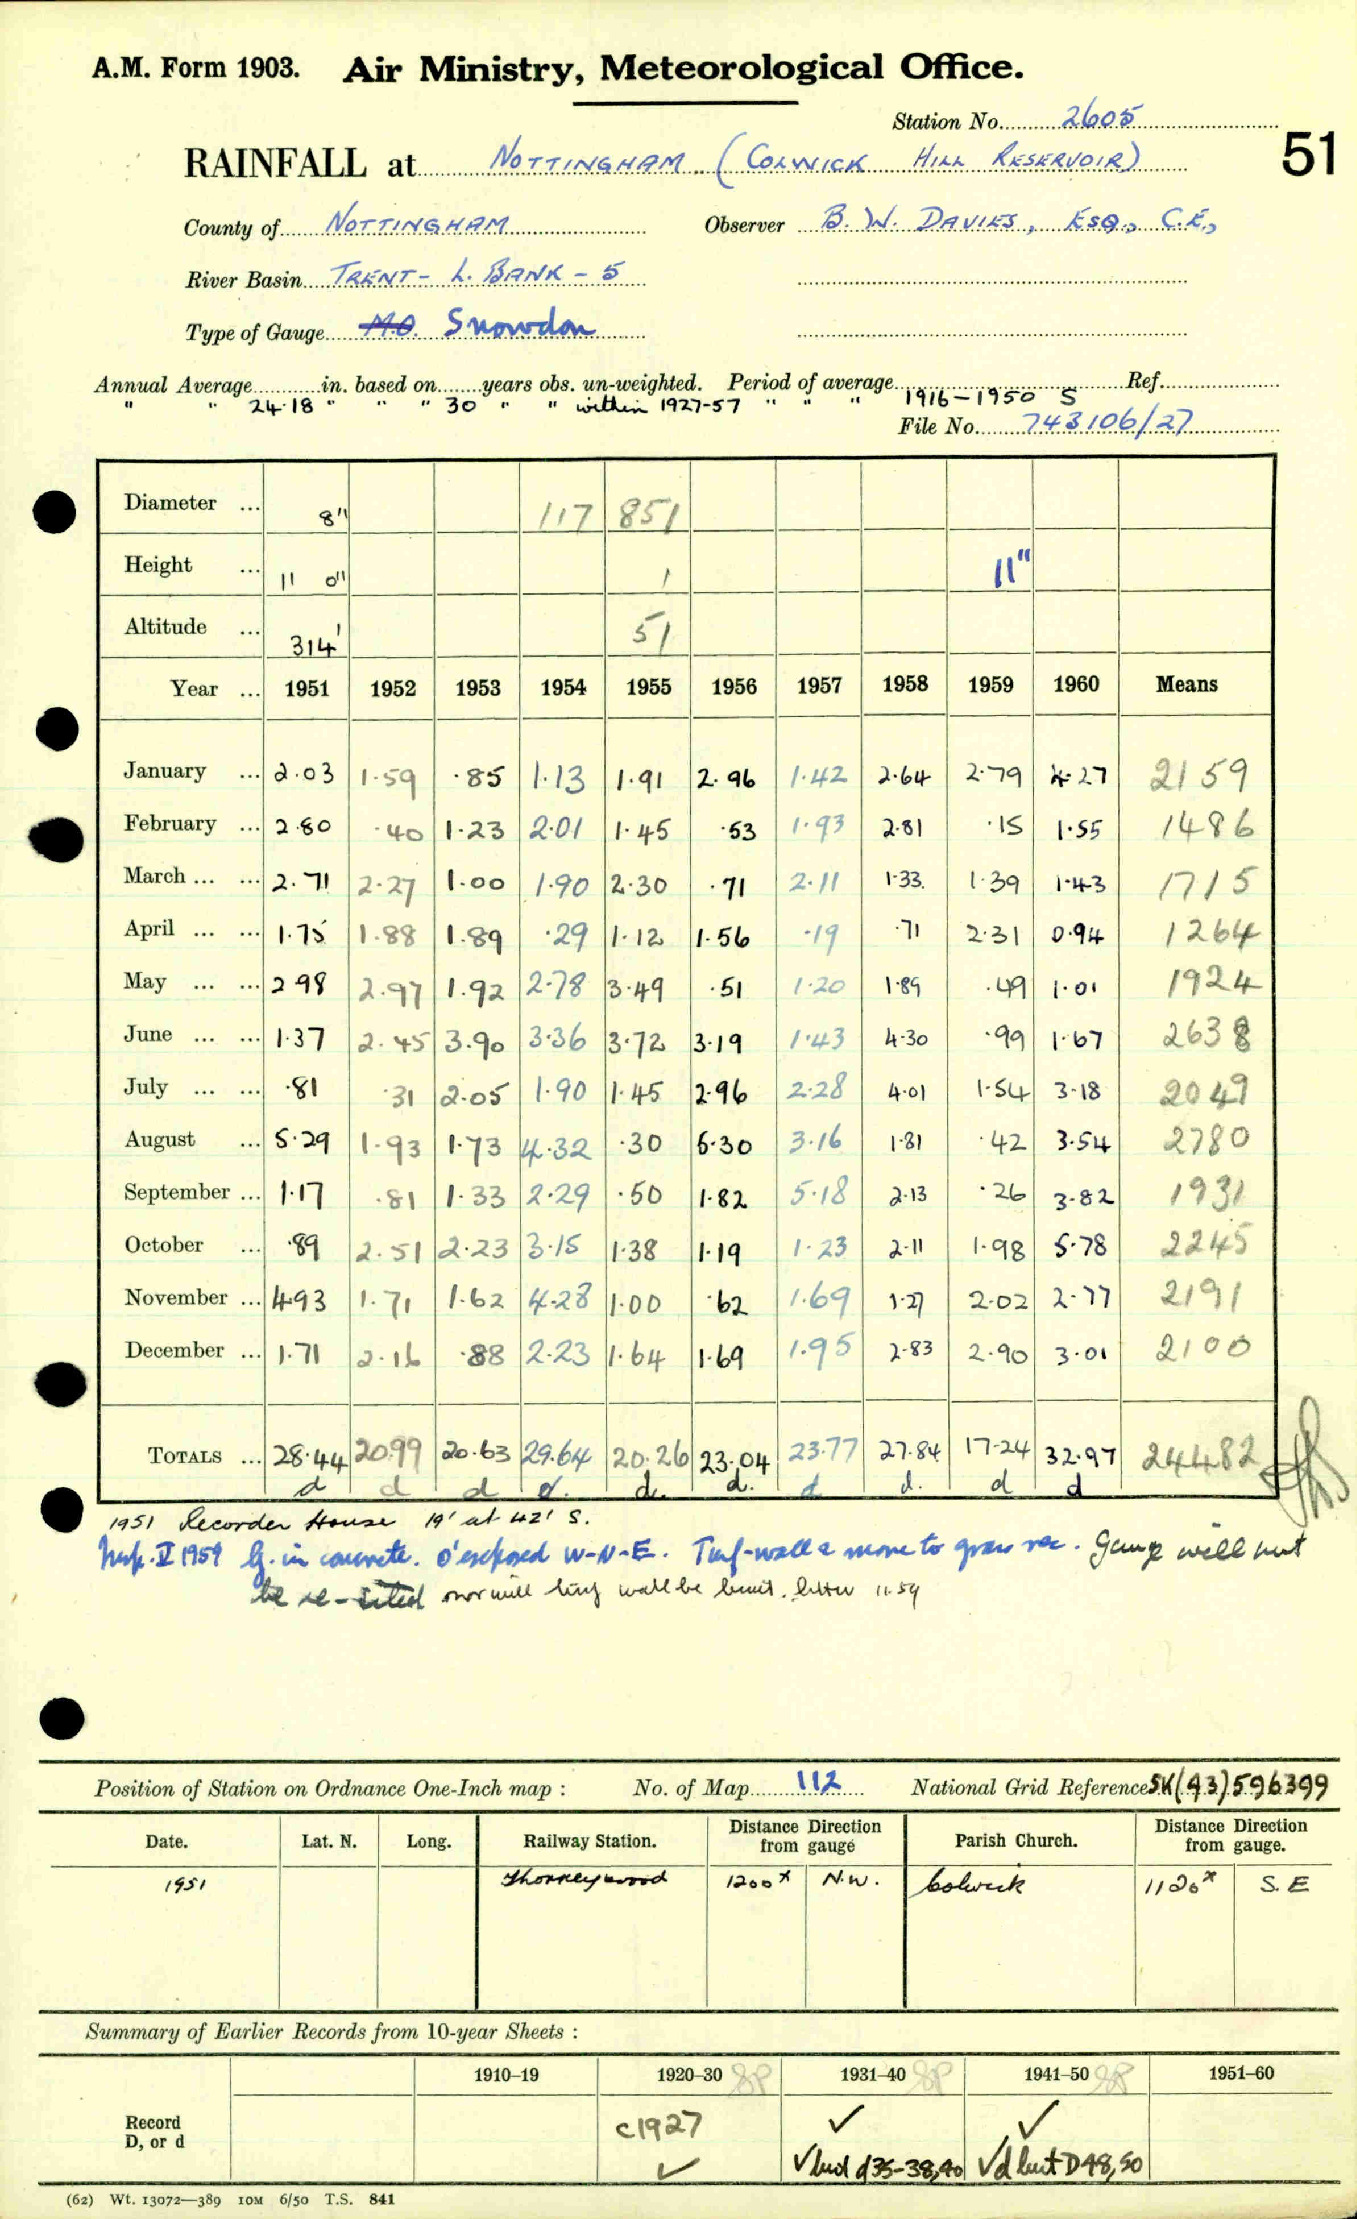 A.M. Form 1903. Air Ministry, Meteorological Office.
Station No. 2605
RAINFALL at NOTTINGHAM (COLWICK HILL RESERVOIR) 51
County of NOTTINGHAM Observer B. W. DAVIES, ESQ., C.E.,
River Basin TRENT - L. BANK - 5
Type of Gauge M.O. Snowdon
Annual Average in. based on years obs. un-weighted. Period of average Ref.
" " 24.18 " " " 30 " " within 1927-57 " " " 1916-1950 S
File No. 743106/27
Diameter ... 8" 117 851
Height ... 11 0" 1 11"
Altitude ... 314' 51
Year ... 1951 1952 1953 1954 1955 1956 1957 1958 1959 1960 Means
January ... 2.03 1.59 .85 1.13 1.91 2.96 1.42 2.64 2.79 4.27 2159
February ... 2.80 .40 1.23 2.01 1.45 .53 1.93 2.81 .15 1.55 1486
March ... ... 2.71 2.27 1.00 1.90 2.30 .71 2.11 1.33 1.39 1.43 1715
April ... ... 1.75 1.88 1.89 .29 1.12 1.56 .19 .71 2.31 0.94 1264
May ... ... 2 98 2.97 1.92 2.78 3.49 .51 1.20 1.89 .49 1.01 1924
June ... ... 1.37 2.45 3.90 3.36 3.72 3.19 1.43 4.30 .99 1.67 2638
July ... ... .81 .31 2.05 1.90 1.45 2.96 2.28 4.01 1.54 3.18 2049
August ... 5.29 1.93 1.73 4.32 .30 5.30 3.16 1.81 .42 3.54 2780
September ... 1.17 .81 1.33 2.29 .50 1.82 5.18 2.13 .26 3.82 1931
October ... .89 2.51 2.23 3.15 1.38 1.19 1.23 2.11 1.98 5.78 2245
November ... 4.93 1.71 1.62 4.28 1.00 .62 1.69 1.27 2.02 2.77 2191
December ... 1.71 2.16 .88 2.23 1.64 1.69 1.95 2.83 2.90 3.01 2100
TOTALS ... 28.44 20.99 20.63 29.64 20.26 23.04 23.77 27.84 17.24 32.97 24482
d d d d. d. d. d d. d d
1951 Recorder House 19' at 42' S.
Insp. V 1959 G. in concrete. O'exposed W-N-E. Turf-wall or move to grass rec. Gauge will not
be re-sited nor will turf wall be built. letter 11.59
Position of Station on Ordnance One-Inch map : No. of Map 112 National Grid Reference SK(43)596399
Date. Lat. N. Long. Railway Station. Distance Direction from gauge Parish Church. Distance Direction from gauge.
1951 Thorneywood 1200x N.W. Colwick 1120x S.E
Summary of Earlier Records from 10-year Sheets :
1910–19 1920–30 1931–40 1941–50 1951–60
Record D, or d c1927 ✓ ✓
✓ ✓ but d35-38,40 ✓d but D48,50
(62) Wt. 13072—389 10M 6/50 T.S. 841